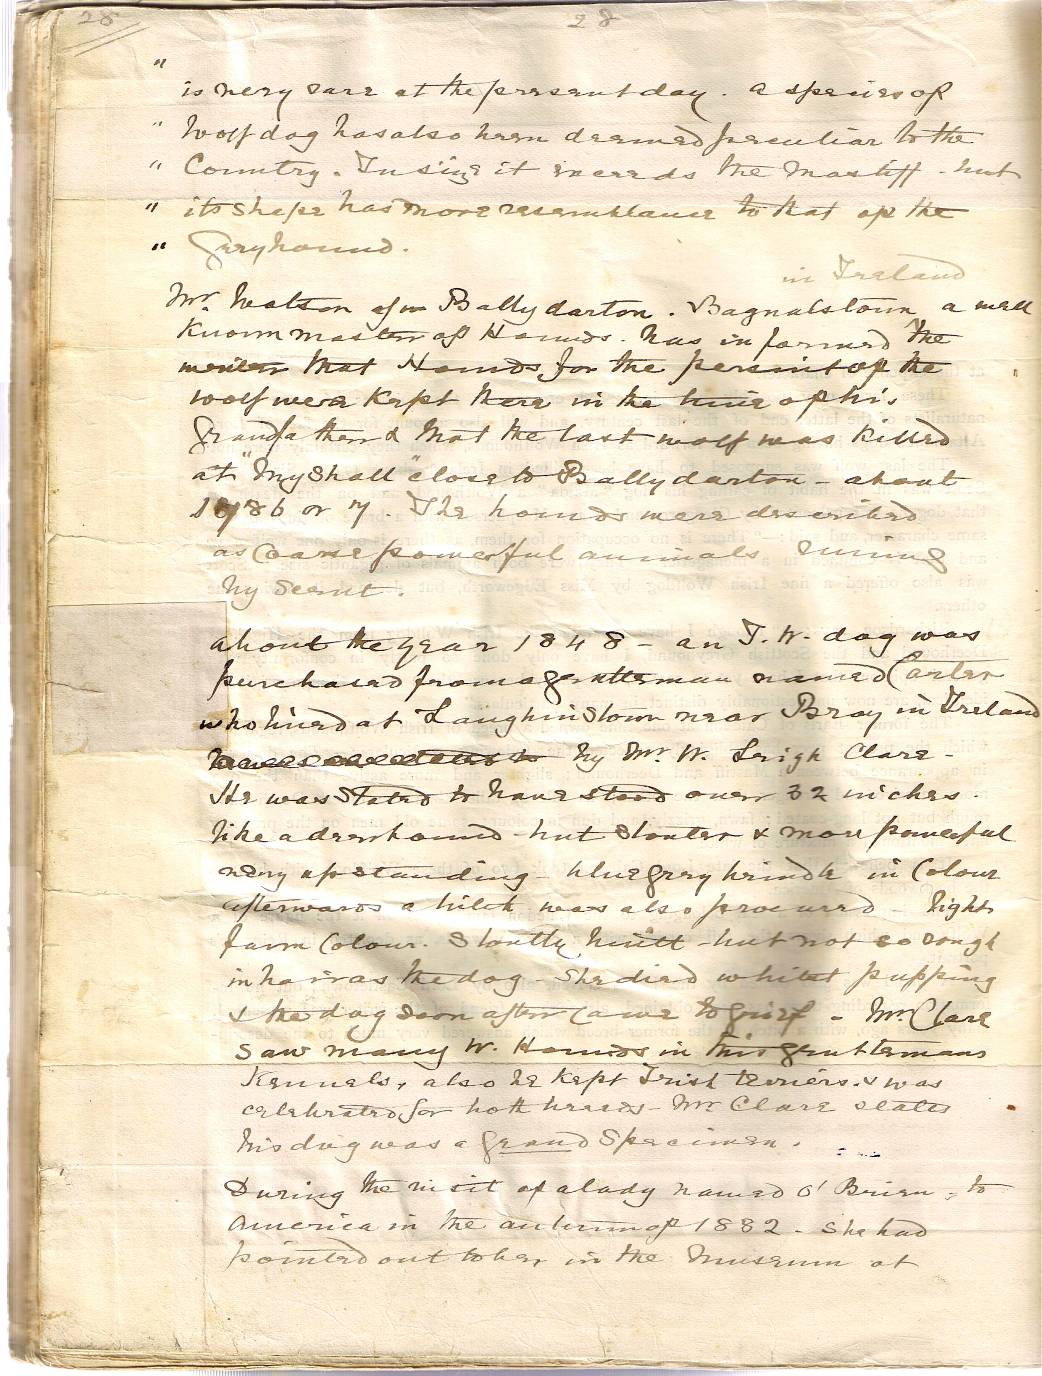 28 28
"
is very rare at the present day. a species of
" Wolf dog has also been deemed peculiar to the
" Country. In size it exceeds the Mastiff - but
" its shape has more resemblance to that of the
" Greyhound.
in Ireland
Mr. Watson of Ballydarton. Bagnalstown a well
known master of Hounds. has informed the
writer that Hounds for the persuit of the
wolf were kept there in the time of his
Grandfather & that the last wolf was killed
at "Myshall" close to Ballydarton - about
1786 or 7. The hounds were described
as Coarse powerful animals running
by scent.
about the year 1848 - an I. W. dog was
purchased from a gentleman named Carter
who lived at Laughlinstown near Bray in Ireland
by Mr. W. Leigh Clare -
He was stated to have stood over 32 inches.
like a deerhound - but stouter & more powerful
very upstanding - blue grey brindle in Colour
afterwards a bitch was also procured - light
fawn Colour. Stoutly built - but not so rough
in hair as the dog - she died whilst pupping
& the dog soon after came to grief - Mr Clare
saw many W. Hounds in this gentlemans
Kennels, also he kept Irish terriers. & was
celebrated for both breeds - Mr Clare states
his dog was a grand Specimen.
During the visit of a lady named O'Brien, to
America in the autumn of 1882 - she had
pointed out to her in the Museum at